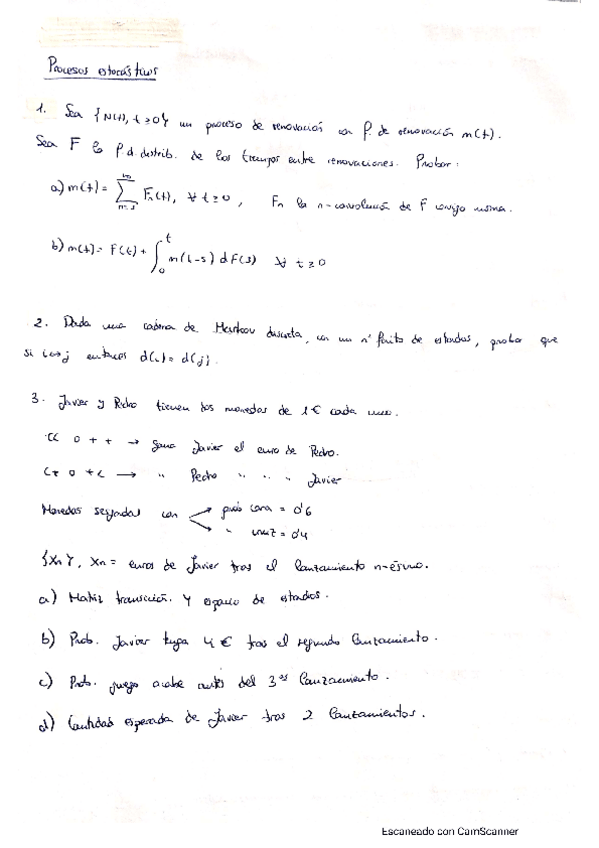 Procesos estocásticos
1. Sea {N(t), t ≥ 0} un proceso de renovación con f. de renovación m(t).
Sea F la f. d. distrib. de los tiempos entre renovaciones. Probar:
a) m(t) = ∑ Fn(t), ∀ t ≥ 0, Fn la n-convolución de F consigo misma.
b) m(t) = F(t) + ∫₀ᵗ m(t-s) dF(s) ∀ t ≥ 0
2. Dada una cadena de Markov discreta, con un nº finito de estados, probar que
si i↔j entonces d(i) = d(j).
3. Javier y Pedro tienen dos monedas de 1€ cada uno.
CC o ++ → gana Javier el euro de Pedro.
C+ o +C → " Pedro " " " Javier
Monedas sesgadas con prob cara = 0'6
" cruz = 0'4
{Xn}, Xn = euros de Javier tras el lanzamiento n-ésimo.
a) Matriz transición y espacio de estados.
b) Prob. Javier tenga 4 € tras el segundo lanzamiento.
c) Prob. juego acabe antes del 3er lanzamiento.
d) Cantidad esperada de Javier tras 2 lanzamientos.
Escaneado con CamScanner